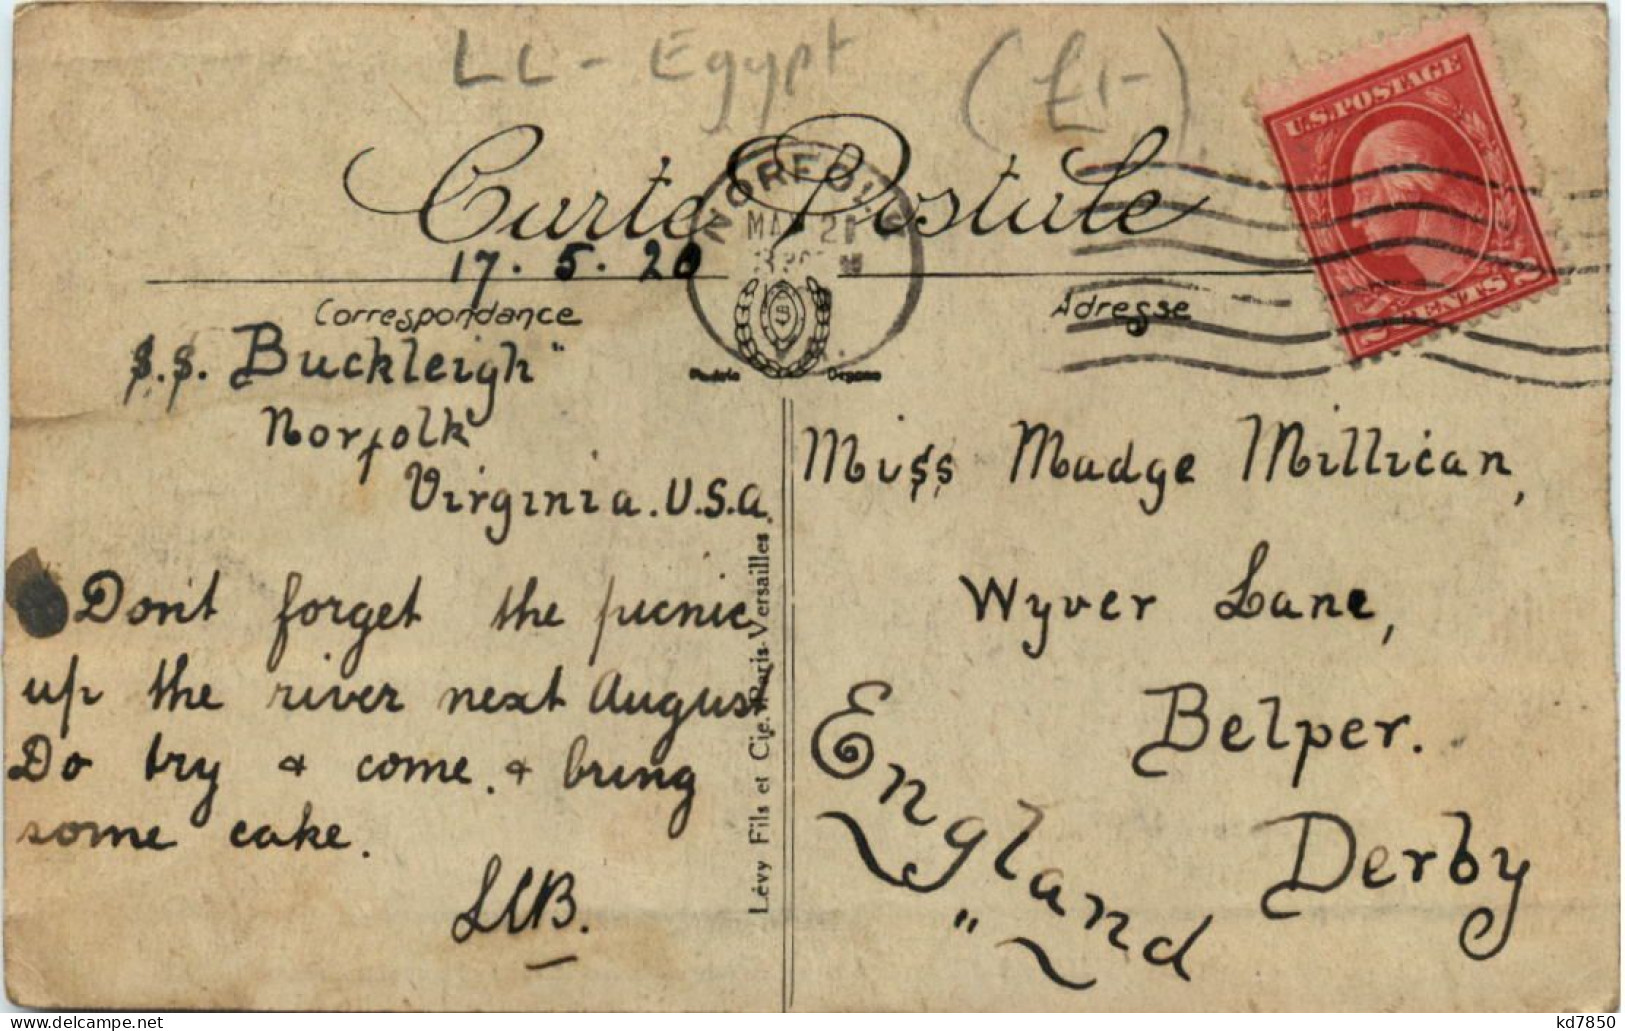 LL - Egypt (£1-)
U.S. POSTAGE
Carte Postale
NORFOLK
17.5.20
2 CENTS 2
Correspondance
Adresse
S.S. Buckleigh"
Norfolk
Virginia. U.S.A.
Don't forget the picnic
up the river next August
Do try & come. & bring
some cake.
LCB.
Lévy Fils et Cie. Paris-Versailles
Miss Madge Millican,
Wyver Lane,
Belper.
Derby
England
kd7850